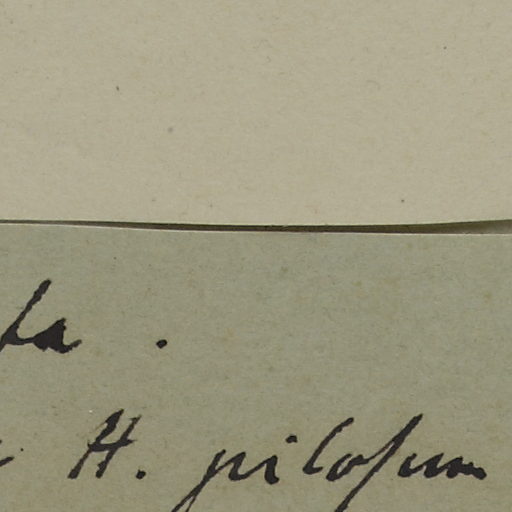 ta .
H. pilosum